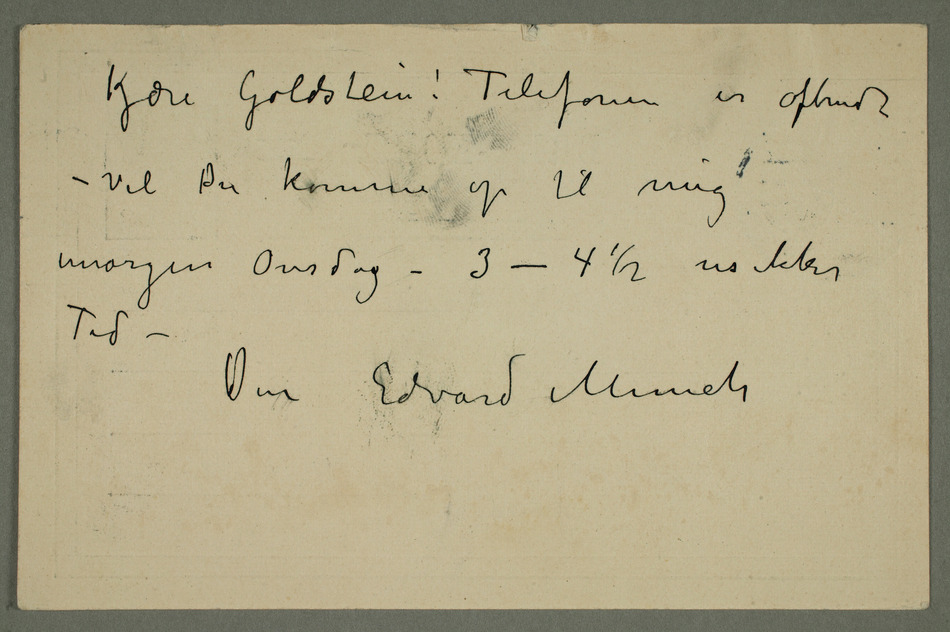 Kjære Goldstein! Telefonen er afbrudt
– vil Du komme op til mig
imorgen Onsdag – 3 – 4 1/2 usikker
Tid –
Din Edvard Munch